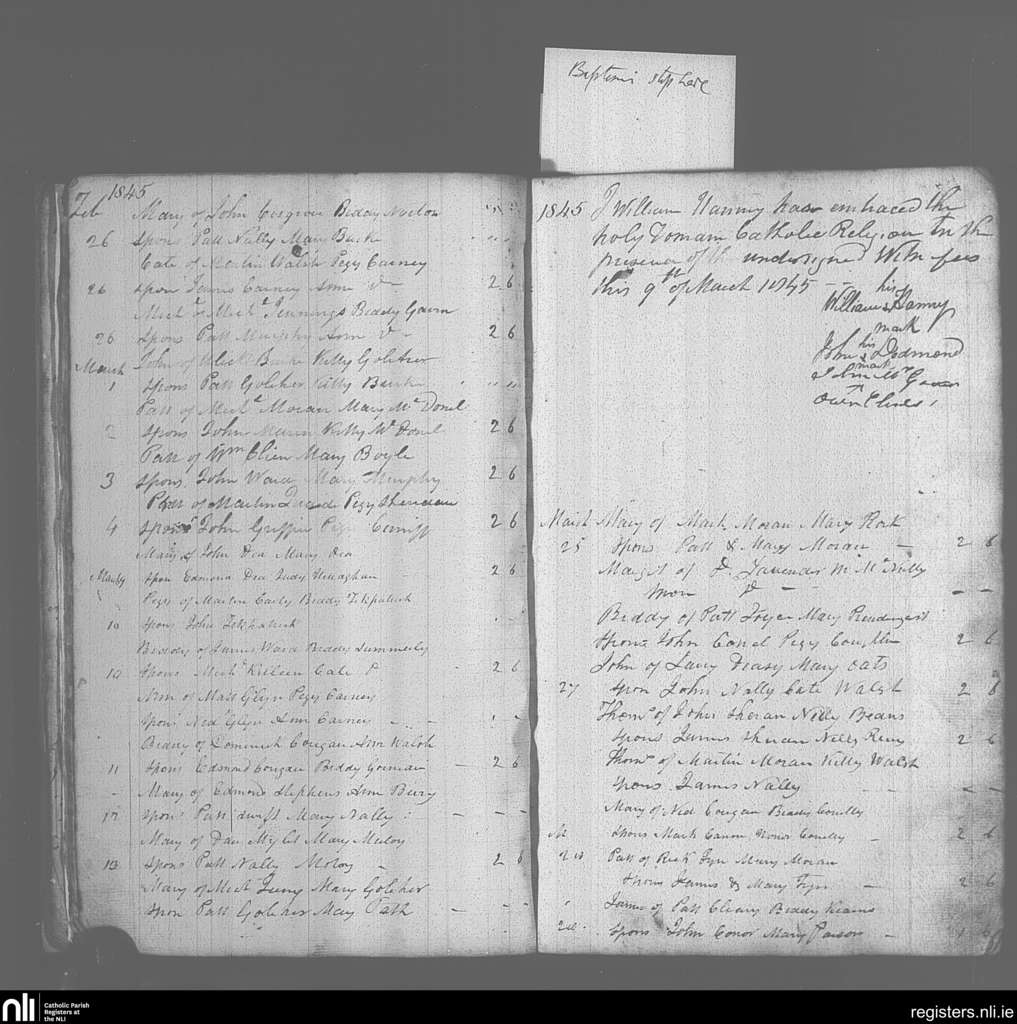 Baptisms stop here
1845
Feb Mary of John Cosgrove Biddy
26 Spons Patt Nally Mary Burke
Cate of Martin Walsh Pegy Carney
26 spon James Carney Ann Do 2 6
Michl of Michl Jennings Biddy Gavin
26 Spons Patt Murphy Ann Do 2 6
March John of Ulick Burke Kitty Goleher
1 Spons Patt Goleher Kitty Burke
Patt of Michl Moran Mary McDonel
2 Spons John Kitty McDonel 2 6
Patt of Wm Clien Mary Boyle
3 Spons John Ward Mary Murphy 2 6
Patt of Martin Pegy Sheridan
4 Spons John Griffin Pegy 2 6
Mary of John Dea Mary Dea
March 9 Spon Edmond Dea Judy Heraghan 2 6
Pegy of Martin Early Biddy Fitzpatrick
10 Spons John Fitzpatrick
Biddy of James Ward Biddy Summerly
10 Spons Michl Killeen Cate 2 6
Ann of Matt Glyn Pegy Carney
Spons Ned Glyn Ann Carney
Biddy of Dominick Cougan Ann Walsh
11 Spons Edmond Cougan Biddy Gorman 2 6
Mary of Edmond Stephens Ann Bury
17 Spons Patt Swift Mary Nally
Mary of Dan Mary Meloy
13 Spons Patt Nally Meloy 2 6
Mary of Michl Mary Goleher
Spon Patt Goleher Mary
1845 I William Hanny has embraced the
holy Roman Catholic Religion in the
presence of the undersigned Witnesses
this 9th of March 1845
his
William x Hanny
mark
his
John x Dodmond
mark
John McGavan
Owen Clisels
March Mary of Mark Moran Mary Rork
25 Spons Patt & Mary Moran 2 6
Margt of D Lavender M McNally
Spon Do
Biddy of Patt Fryer Mary Prendergast
Spons John Conel Pegy Coughlin 2 6
John of Lavy Deasy Mary Oats
27 Spon John Nally Cate Walsh 2 6
Thoms of John Sheran Nelly Beans
Spons James Sheran Nelly 2 6
Thoms of Martin Moran Kitty Walsh
Spons James Nally
Mary of Ned Cougan Biddy Conelly
Spons Mark Canon Honor Conelly 2 6
28 Patt of Rick Fyn Mary Moran
Spons James & Mary Fyn 2 6
James of Patt Cleary Biddy Kearns
28 Spons John Conor Mary Parson
nli Catholic Parish
Registers at
the NLI
registers.nli.ie